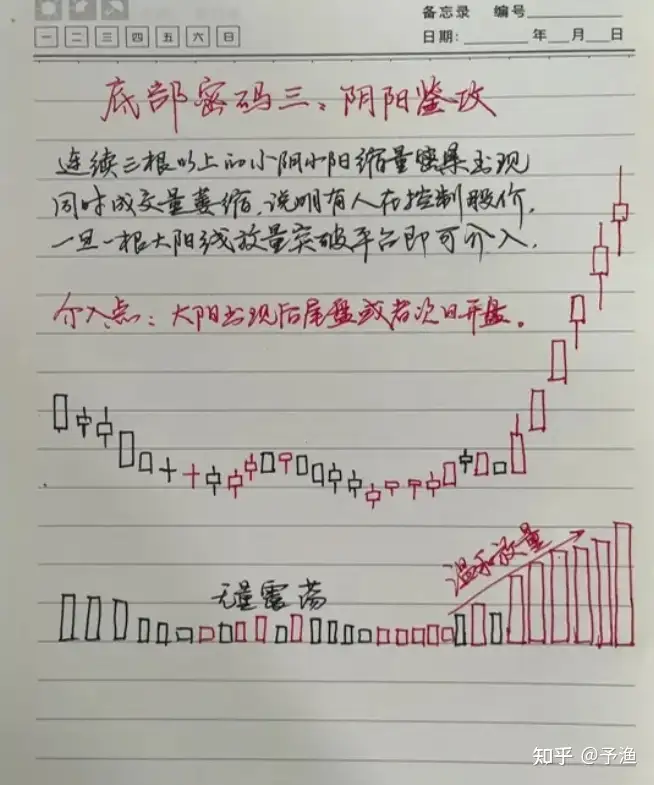 备忘录 编号
一 二 三 四 五 六 日
日期: 年 月 日
底部密码三：阴阳鉴攻
连续三根以上的小阴小阳缩量密集出现
同时成交量萎缩，说明有人在控制股价，
一旦一根大阳线放量突破平台即可介入，
介入点：大阳出现后尾盘或者次日开盘。
温和放量
无量震荡
知乎 @予渔